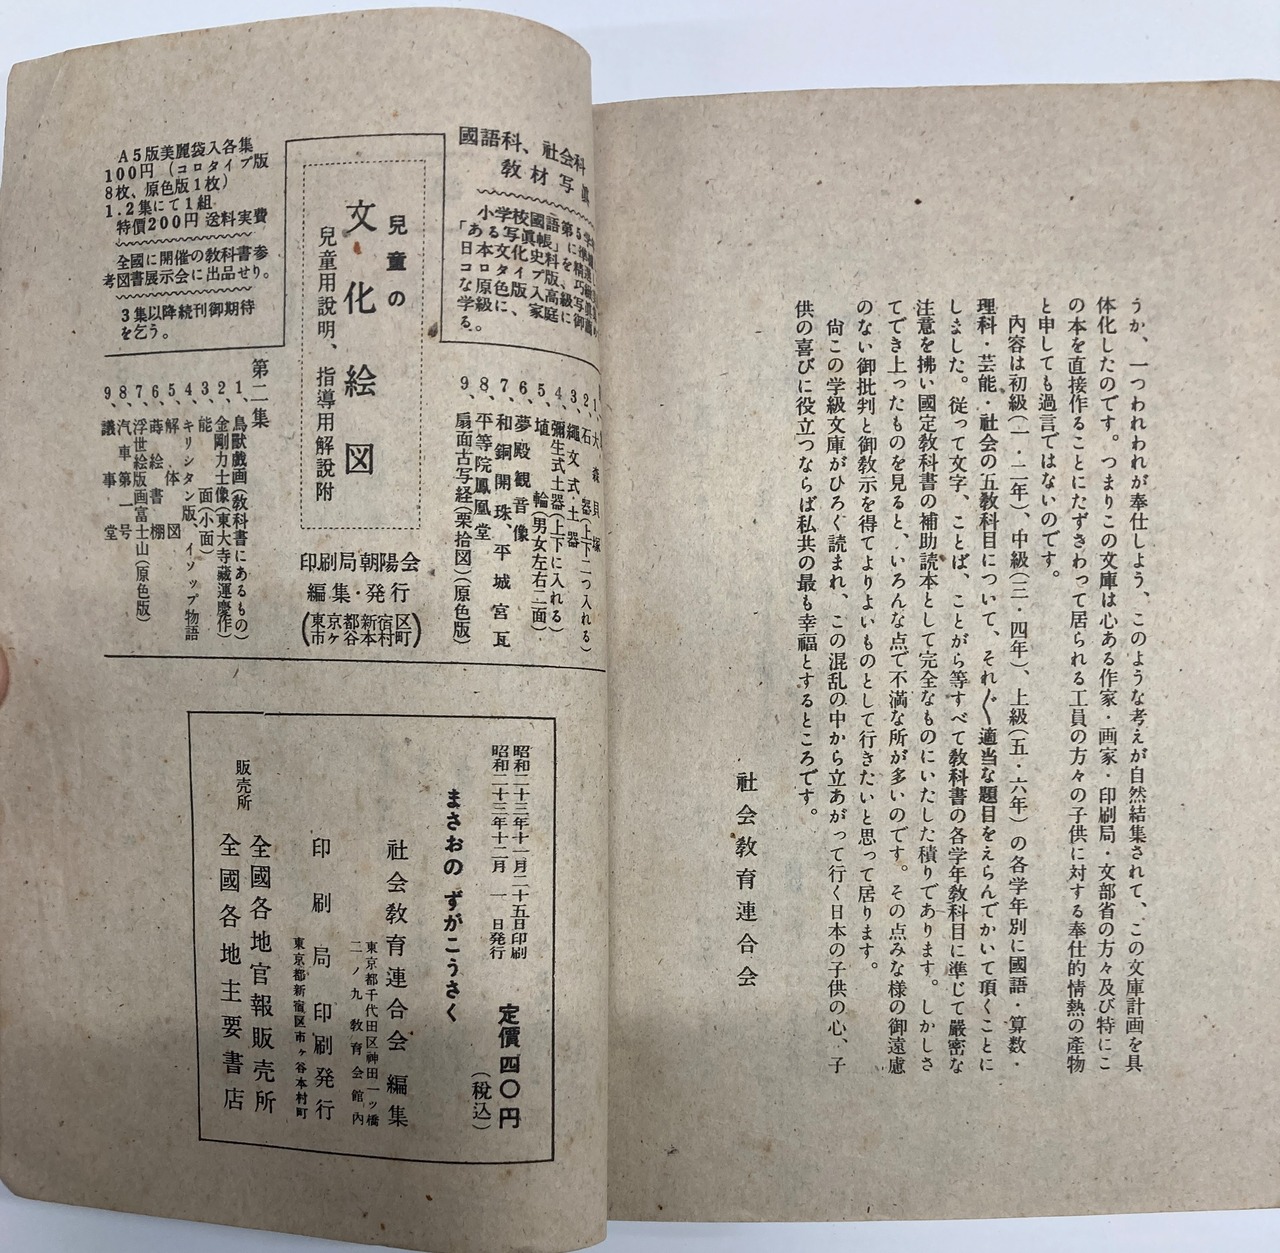 うか、一つわれわれが奉仕しよう、このような考えが自然結集されて、この文庫計画を具
体化したのです。つまりこの文庫は心ある作家・画家・印刷局・文部省の方々及び特にこ
の本を直接作ることにたずさわって居られる工員の方々の子供に対する奉仕的情熱の産物
と申しても過言ではないのです。
内容は初級(一・二年)、中級(三・四年)、上級(五・六年)の各学年別に國語・算数・
理科・芸能・社会の五教科目について、それ〲適当な題目をえらんでかいて頂くことに
しました。従って文字、ことば、ことがら等すべて教科書の各学年教科目に準じて嚴密な
注意を拂い國定教科書の補助読本として完全なものにいたした積りであります。しかしさ
てでき上ったものを見ると、いろんな点で不満な所が多いのです。その点みな様の御遠慮
のない御批判と御教示を得てよりよいものとして行きたいと思って居ります。
尙この学級文庫がひろく読まれ、この混乱の中から立あがって行く日本の子供の心、子
供の喜びに役立つならば私共の最も幸福とするところです。
社会教育連合会
國語科、社会科
教材写眞
小学校國語第5学年
「ある写眞帳」に準
日本文化史料を精選
コロタイプ版、巧緻
な原色版、入級写眞
学級に、家庭に御
る。
兒童の
文化絵図
兒童用説明、指導用解説附
印刷局朝陽会
編集・発行
(東京都新宿区
市ヶ谷本村町)
A5版美麗袋入各集
100円(コロタイプ版
8枚、原色版1枚)
1.2集にて1組
特價200円 送料実費
全國に開催の教科書参
考図書展示会に出品せり。
3集以降続刊御期待
を乞う。
1、大森貝塚
2、石器(上下二つ入れる)
3、繩文式土器
4、彌生式土器(上下に入れる)
5、埴輪(男女左右二面)
6、夢殿観音像
7、和銅開珠、平城宮瓦
8、平等院鳳凰堂
9、扇面古写経(栗拾図)(原色版)
第二集
1、鳥獣戯画(教科書にあるもの)
2、金剛力士像(東大寺藏運慶作)
3、能面(小面)
4、キリシタン版、イソップ物語
5、解体図
6、蒔絵書棚
7、浮世絵版画富士山(原色版)
8、汽車第一号
9、議事堂
昭和二十三年十一月二十五日印刷
昭和二十三年十二月一日発行
定價四〇円
(税込)
まさおの ずがこうさく
社会教育連合会編集
東京都千代田区神田一ッ橋
二ノ九 教育会館内
印刷局印刷発行
東京都新宿区市ヶ谷本村町
販売所
全國各地官報販売所
全國各地主要書店